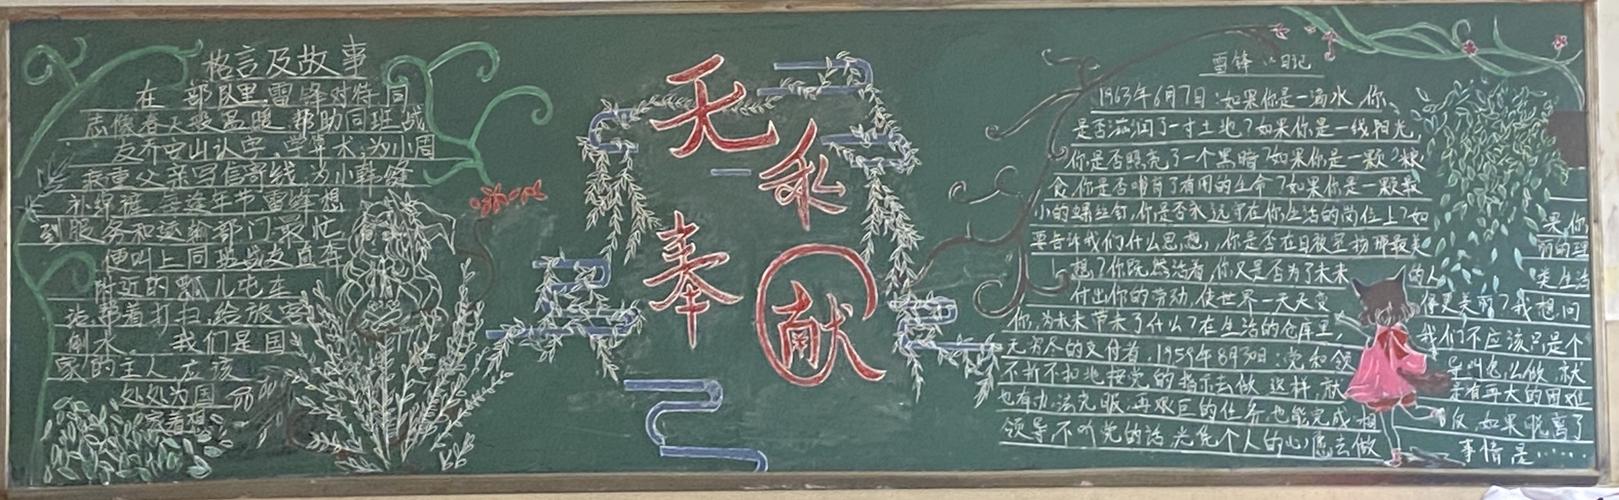 格言及故事
在部队里,雷锋对待同
志像春天般温暖 帮助同班战
友乔安山认字、学算术;为小周
病重父亲写信寄钱,为小韩缝
补棉裤 每逢年节雷锋想
到服务和运输部门最忙
便叫上同班战友直奔
附近的瓢儿屯车
站帮着打扫,给旅客
倒水。 我们是国
家的主人 应该
处处为国
家着想
无私
奉献
雷锋 日记
1963年6月7日:如果你是一滴水,你
是否滋润了一寸土地?如果你是一线阳光,
你是否照亮了一个黑暗?如果你是一颗粮
食,你是否哺育了有用的生命?如果你是一颗最
小的螺丝钉,你是否永远守在你生活的岗位上?如果你
要告诉我们什么思想,你是否在日夜宣扬那最美丽的理
想?你既然活着,你又是否为了未来的人类生活
付出你的劳动,使世界一天天变得更美丽?我想问
你,为未来带来了什么?在生活的仓库里,我们不应该只是个
无穷尽的支付者。1959年8月30日:党和领导叫怎么做,就
不折不扣地按党的指示去做 这样,就是有再大的困难
也有办法克服,再艰巨的任务也能完成 相反,如果脱离了
领导,不听党的话,光凭个人的心愿去做事情是……